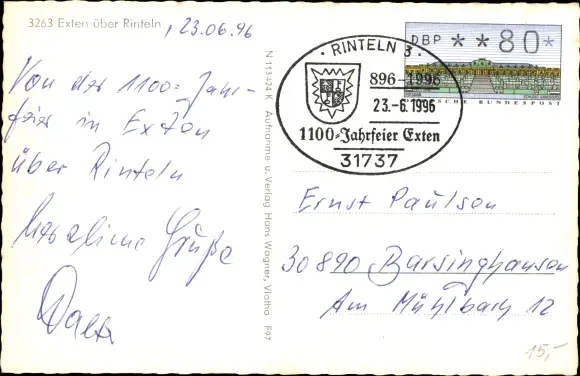 3263 Exten über Rinteln, 23.06.96
Von der 1100-Jahr-
feier in Exten
über Rinteln
herzliche Grüße
N 113424K Aufnahme u. Verlag Hans Wagner, Vlotho F97
DBP **80*
DEUTSCHE BUNDESPOST
· RINTELN 3 ·
896-1996
23.-6.1996
1100-Jahrfeier Exten
31737
Ernst Paulson
30890 Barsinghausen
Am Mühlbach 12
15,-